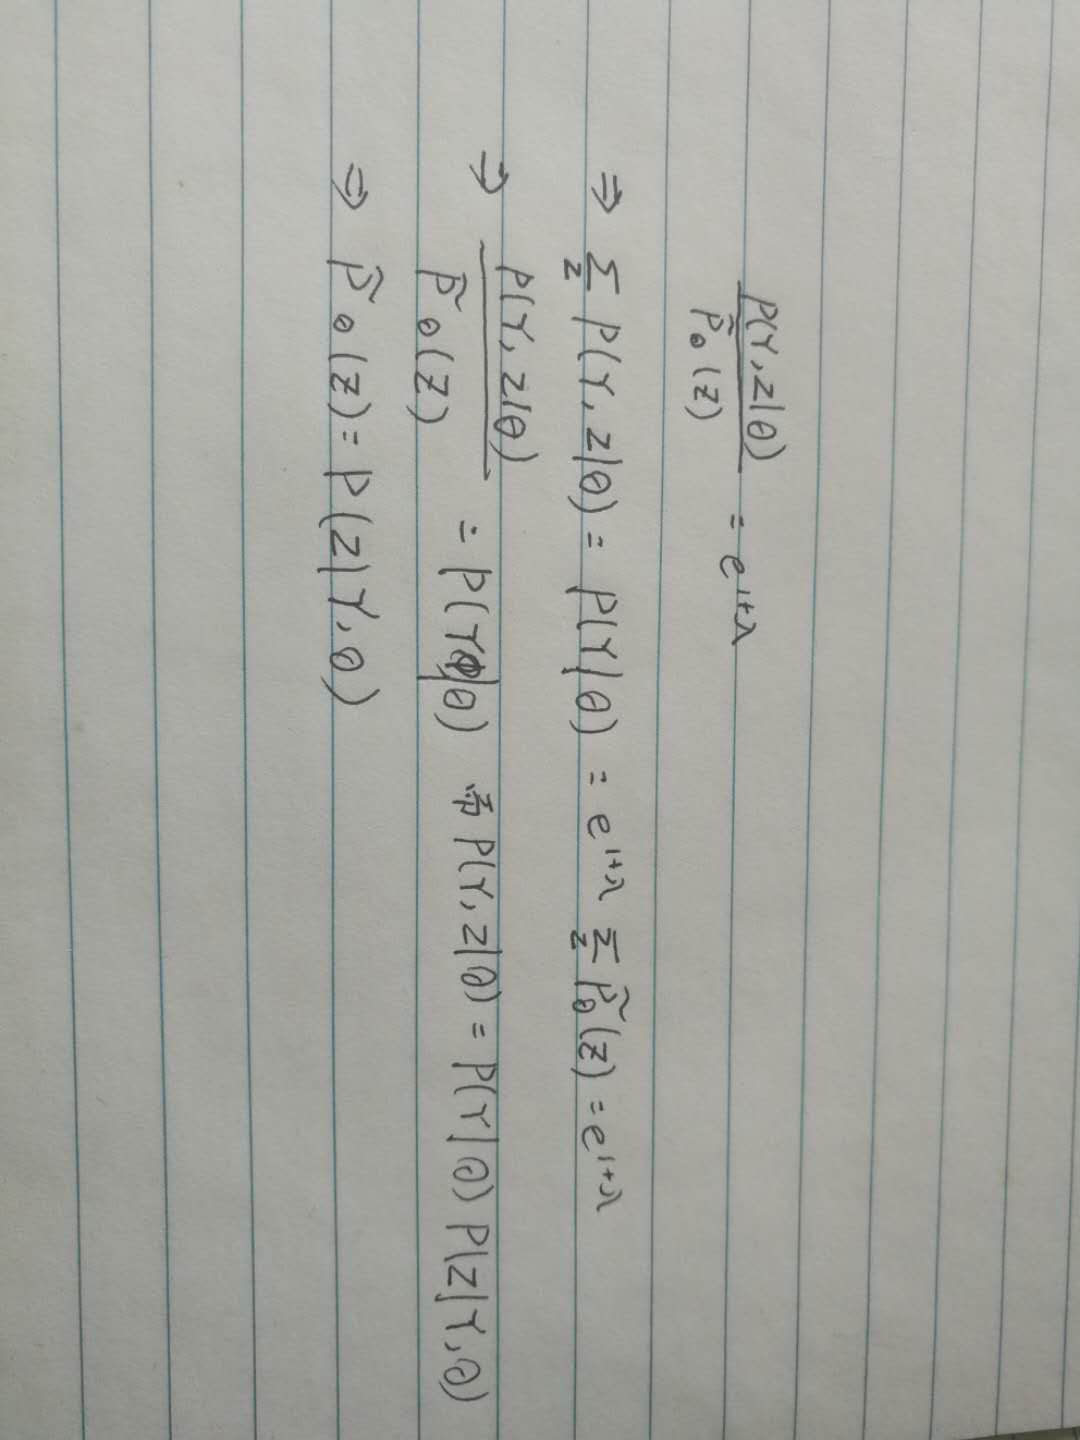 P(Y,Z|θ) / P̃θ(Z) = e^{1+λ}
⇒ Σ_Z P(Y,Z|θ) = P(Y|θ) = e^{1+λ} Σ_Z P̃θ(Z) = e^{1+λ}
→ P(Y,Z|θ) / P̃θ(Z) = P(Y|θ) 而 P(Y,Z|θ) = P(Y|θ) P(Z|Y,θ)
⇒ P̃θ(Z) = P(Z|Y,θ)